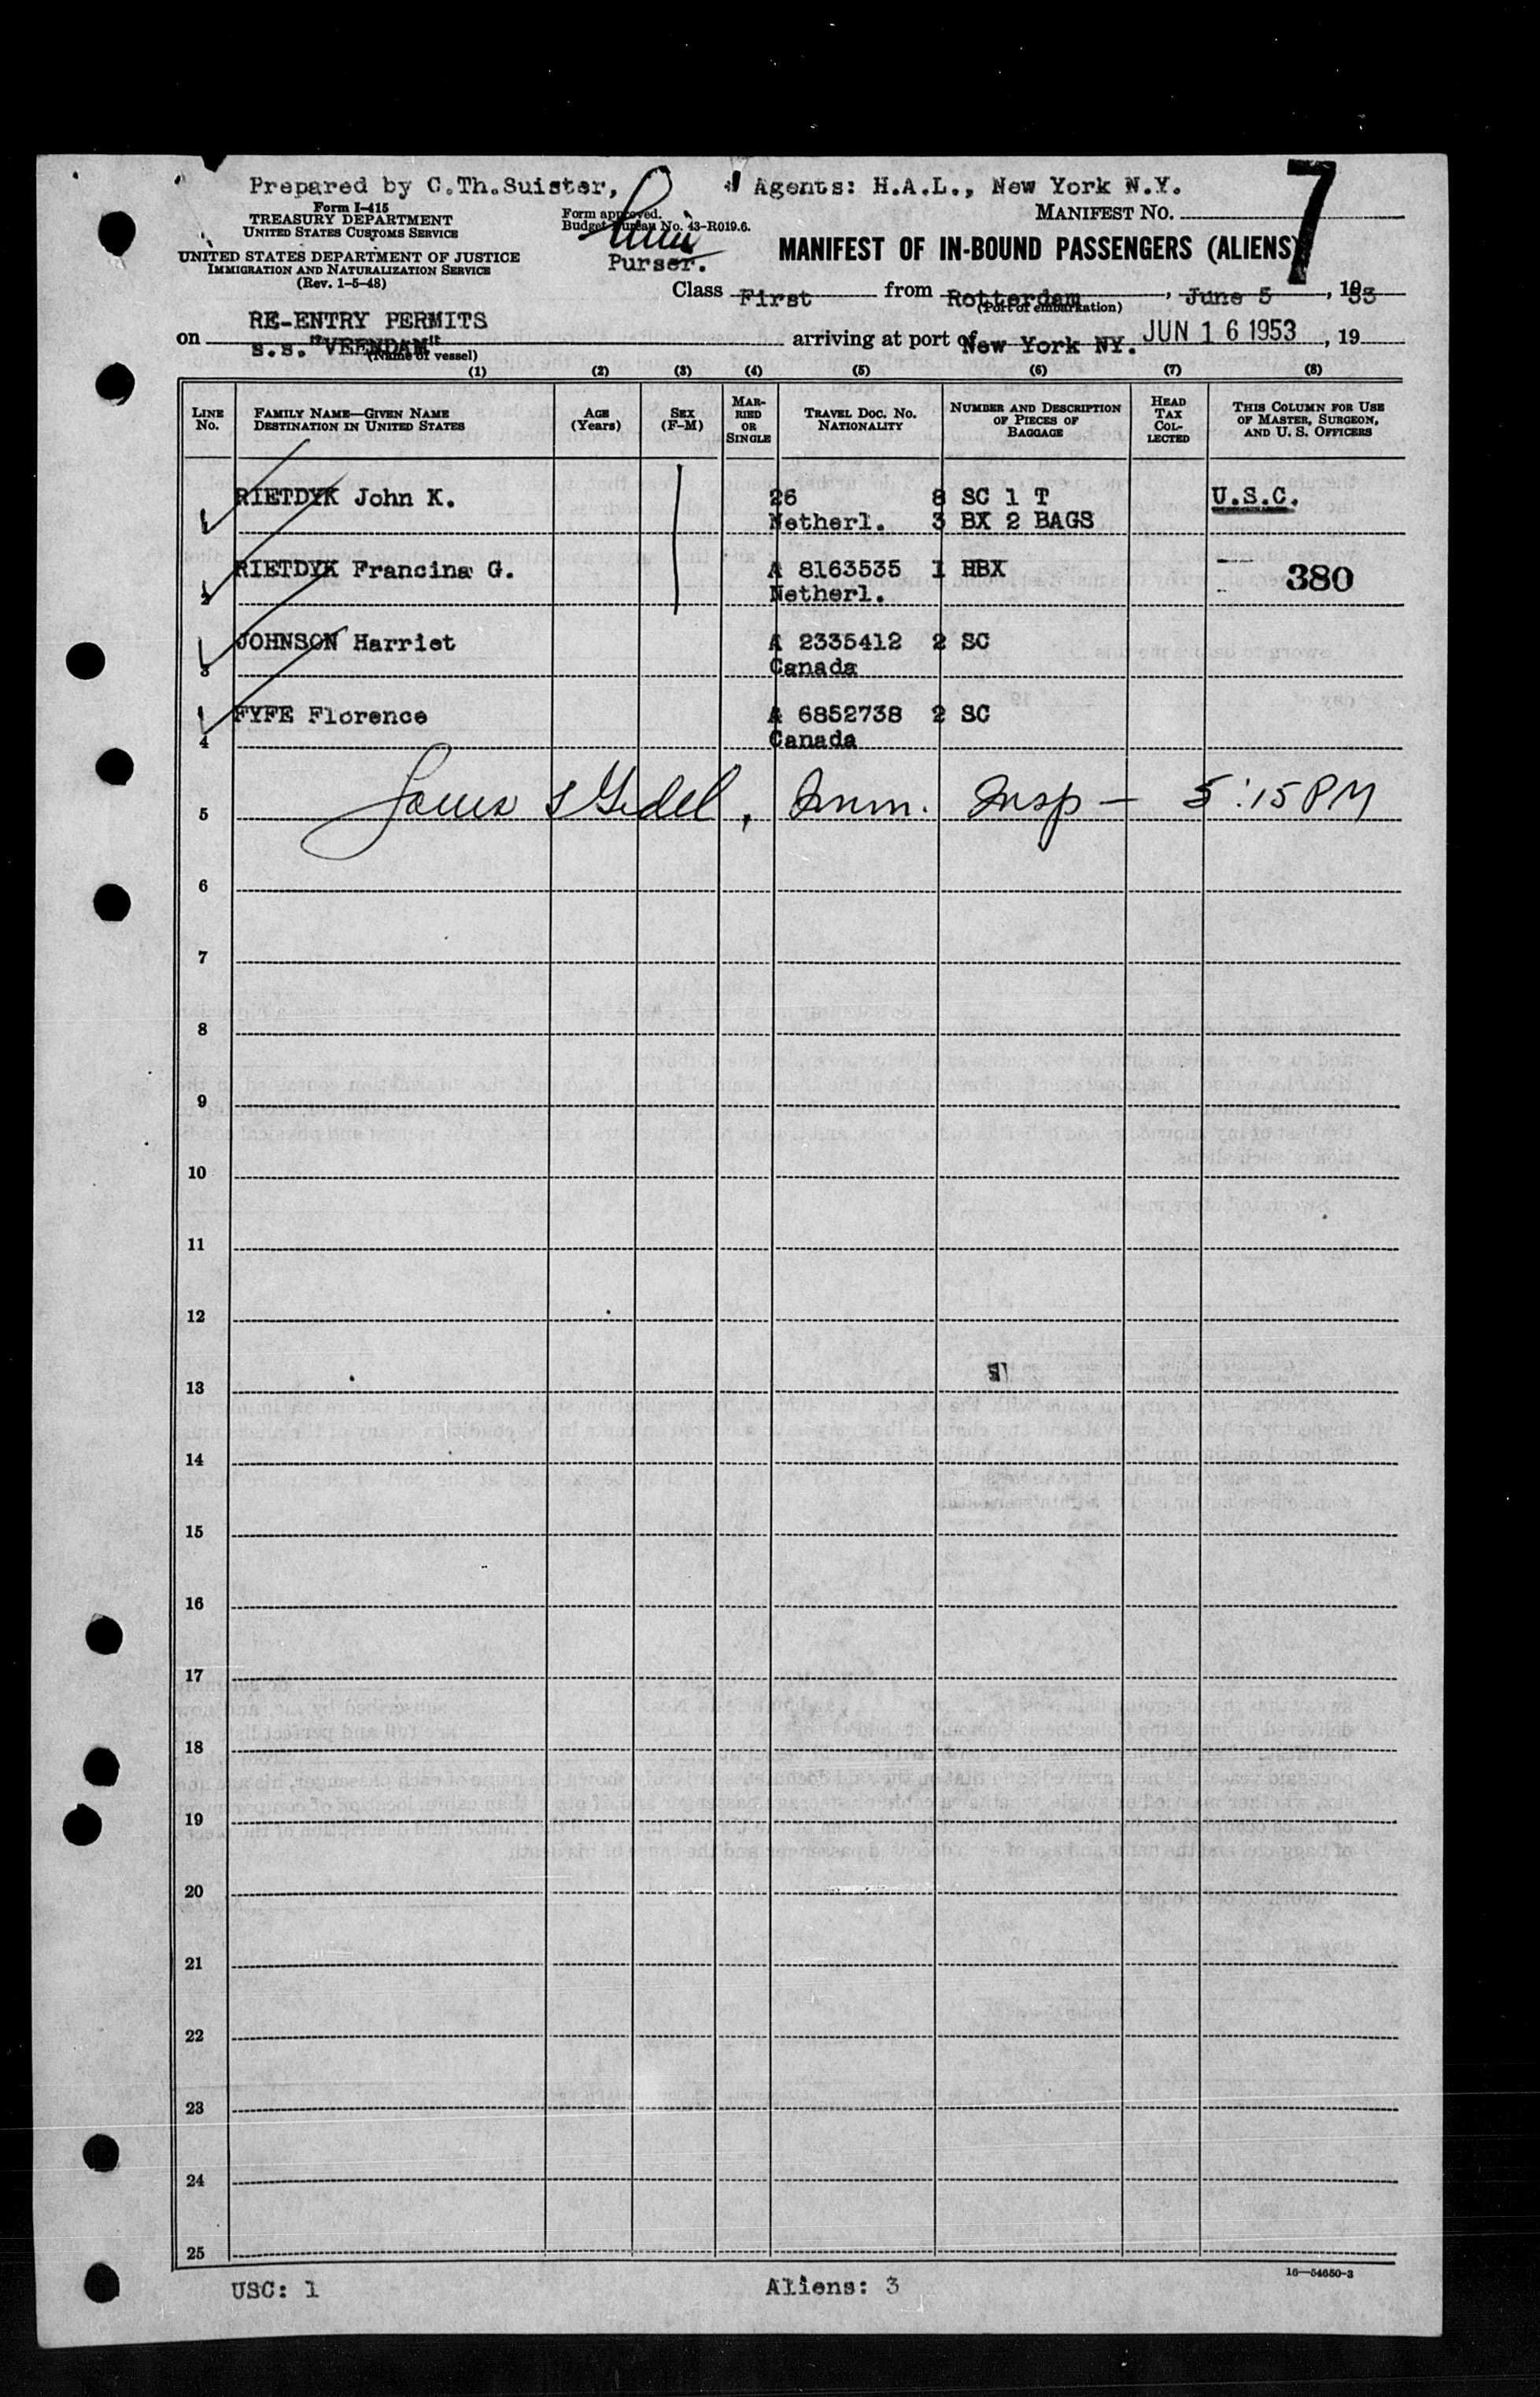 Prepared by C.Th.Suister, Agents: H.A.L., New York N.Y.
7
Form I-415
TREASURY DEPARTMENT
UNITED STATES CUSTOMS SERVICE
UNITED STATES DEPARTMENT OF JUSTICE
IMMIGRATION AND NATURALIZATION SERVICE
(Rev. 1-5-48)
Form approved.
Budget Bureau No. 43-R019.6.
Purser.
MANIFEST NO.
MANIFEST OF IN-BOUND PASSENGERS (ALIENS)
Class First from Rotterdam, June 5, 1953
(Port of embarkation)
RE-ENTRY PERMITS
on s.s. "VEENDAM" arriving at port of New York NY. JUN 16 1953, 19
(Name of vessel)
(1) (2) (3) (4) (5) (6) (7) (8)
LINE No. FAMILY NAME—GIVEN NAME DESTINATION IN UNITED STATES AGE (Years) SEX (F-M) MARRIED OR SINGLE TRAVEL DOC. NO. NATIONALITY NUMBER AND DESCRIPTION OF PIECES OF BAGGAGE HEAD TAX COLLECTED THIS COLUMN FOR USE OF MASTER, SURGEON, AND U. S. OFFICERS
RIETDYK John K. 26 8 SC 1 T U.S.C.
1 Netherl. 3 BX 2 BAGS
RIETDYK Francina G. A 8163535 1 HBX 380
2 Netherl.
JOHNSON Harriet A 2335412 2 SC
3 Canada
FYFE Florence A 6852738 2 SC
4 Canada
5 Imm. Insp — 5:15 PM
6
7
8
9
10
11
12
13
14
15
16
17
18
19
20
21
22
23
24
25
16—54650-3
USC: 1 Aliens: 3